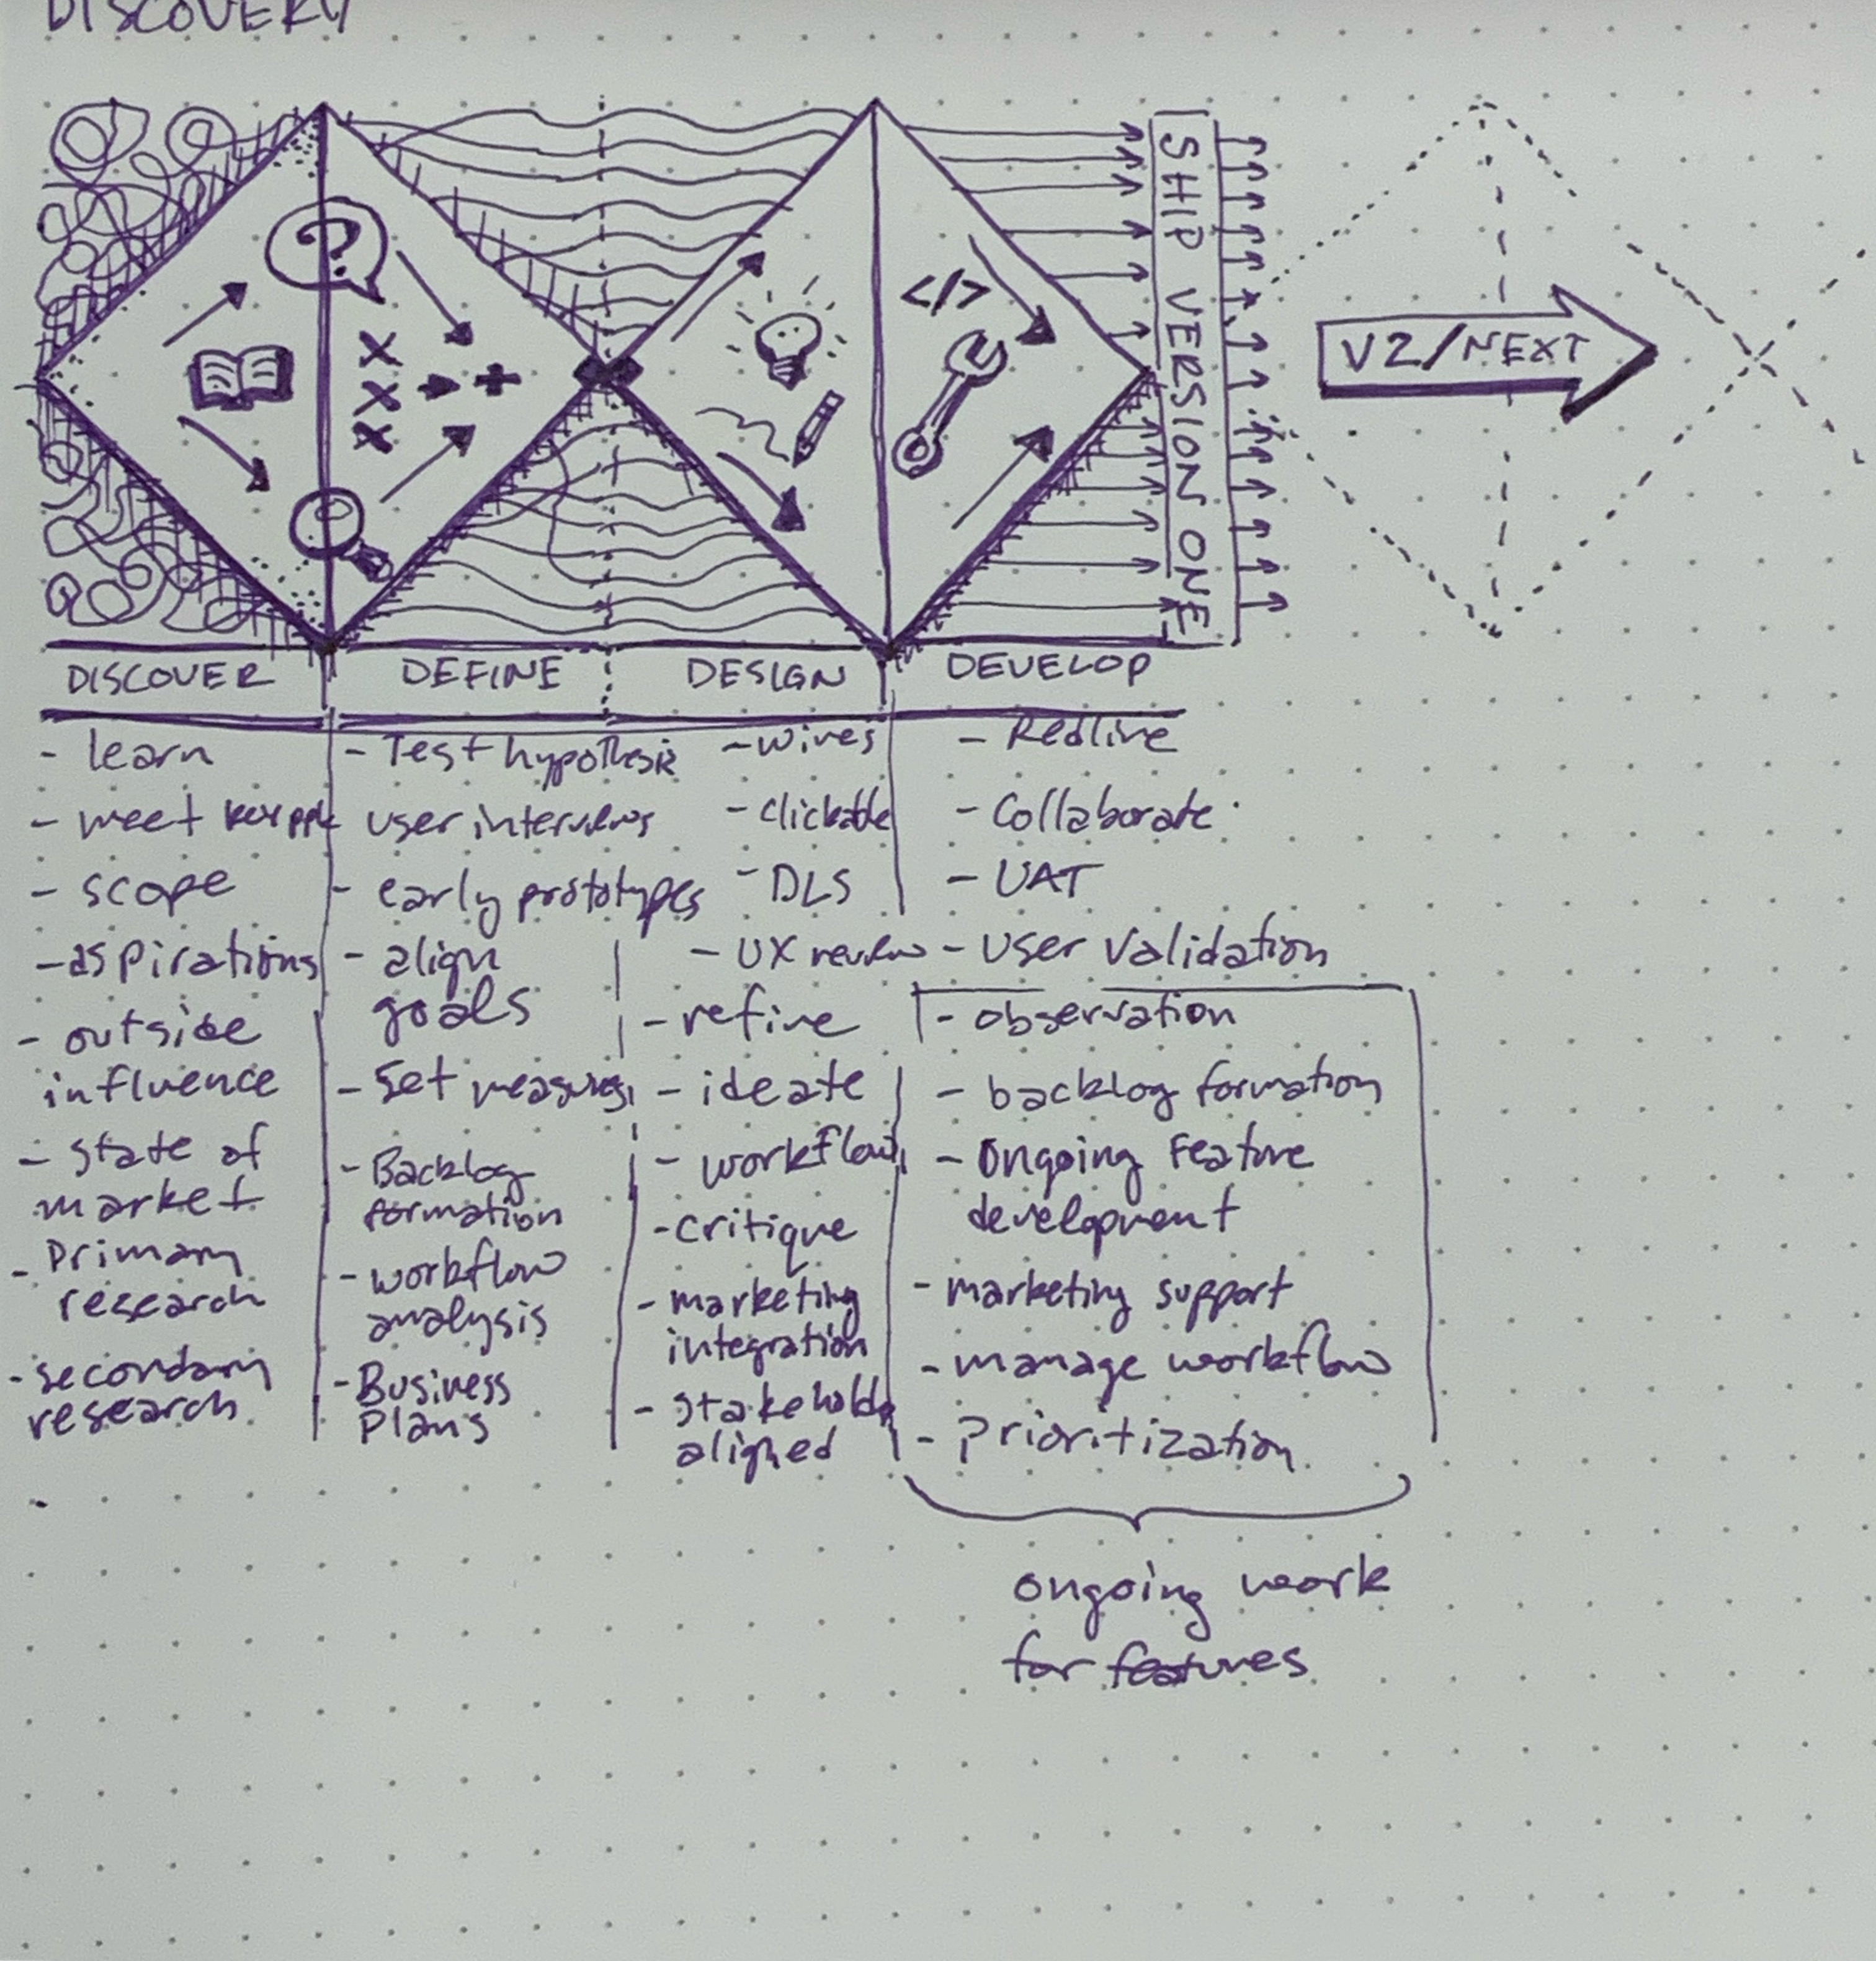 DISCOVERY
?
</>
SHIP VERSION ONE
V2/NEXT
DISCOVER
DEFINE
DESIGN
DEVELOP
- learn
- meet key ppl
- scope
- aspirations
- outside
influence
- state of
market
- Primary
research
- secondary
research
- Test hypothesis
user interviews
- early prototypes
- align
goals
- Set measures
- Backlog
formation
- workflow
analysis
- Business
Plans
- wires
- clickable
- DLS
- UX review
- refine
- ideate
- workflow
- critique
- marketing
integration
- stakeholder
aligned
- Redline
- Collaborate
- UAT
- User Validation
- observation
- backlog formation
- Ongoing Feature
development
- marketing support
- manage workflow
- Prioritization
ongoing work
for features